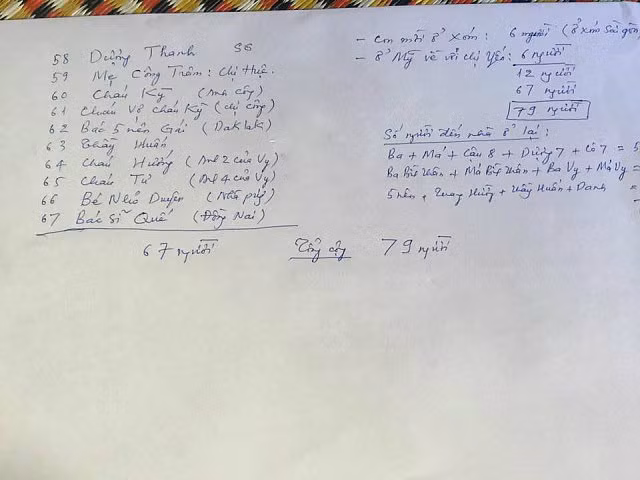 58 Dượng Thanh SG
59 Mẹ Công Trâm: Chị Huệ.
60 Cháu Kỳ (Anh công)
61 Cháu Vợ cháu Kỳ (chị công)
62 Bác 5 nên Gái (Daklak)
63 Thầy Huấn
64 Cháu Hường (Anh 2 của Vy)
65 Cháu Tư (Anh 4 của Vy)
66 Bé Nhã Duyên (Nhã phú)
67 Bác Sĩ Quế (Đồng Nai)
67 người
Tổng cộng 79 người
- Con mời ở xóm: 6 người (ở xóm Sài gòn
- ở Mỹ về với chị Yến: 6 người
12 người
67 người
79 người
Số người đến nhà ở lại:
Ba + Má + Cậu 8 + Dượng 7 + Cô 7 = 5
Ba + Má + Ba Vy + Má Vy =
5 nên + Hường + Thầy Huấn + Danh =